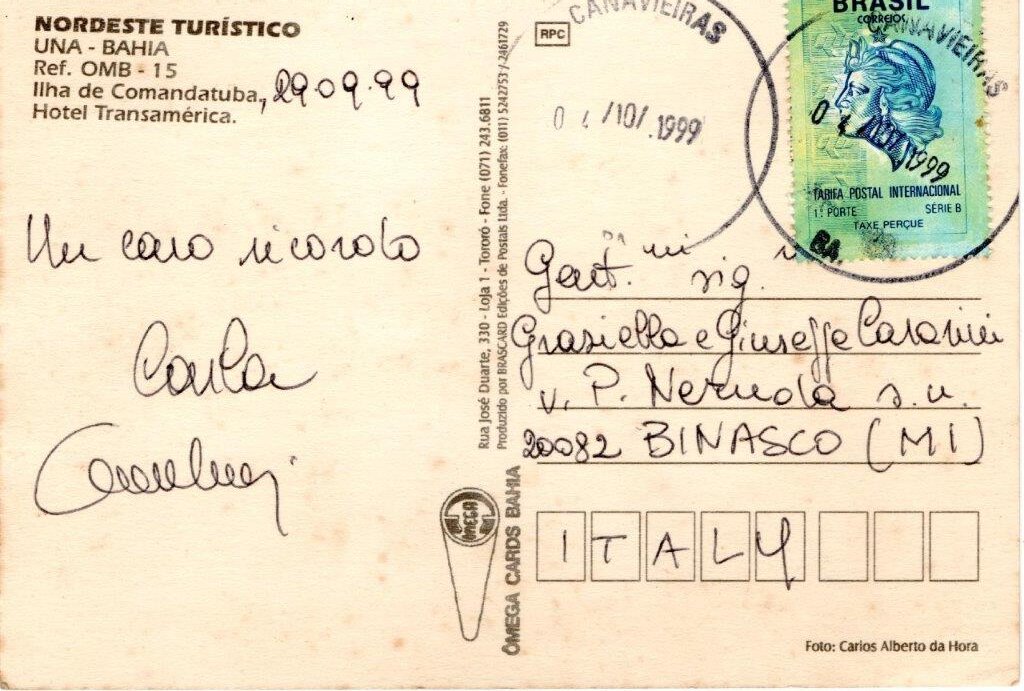 NORDESTE TURÍSTICO
UNA - BAHIA
Ref. OMB - 15
Ilha de Comandatuba, 29.09.99
Hotel Transamérica.
Un caro ricordo
Carla
Rua José Duarte, 330 - Loja 1 - Tororó - Fone (071) 243.6811
Produzido por BRASCARD Edições de Postais Ltda. - Fonefax: (011) 5242753 / 2461729
OMEGA
ÔMEGA CARDS BAHIA
RPC
CANAVIEIRAS
/10/.1999
BRASIL
CORREIOS
CANAVIEIRAS
1999
TARIFA POSTAL INTERNACIONAL
1º PORTE SÉRIE B
TAXE PERÇUE
BA
Gent.mi sig.
Grasiella e Giuseppe
v. P. Neruda s.n.
20082 BINASCO (MI)
ITALY
Foto: Carlos Alberto da Hora